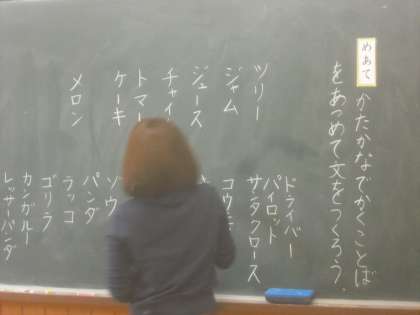 めあて
かたかなでかくことば
をあつめて文をつくろう。
ツリー
ジャム
ジュース
ケーキ
メロン
ドライバー
パイロット
サンタクロース
ゾウ
パンダ
ラッコ
ゴリラ
カンガルー
レッサーパンダ